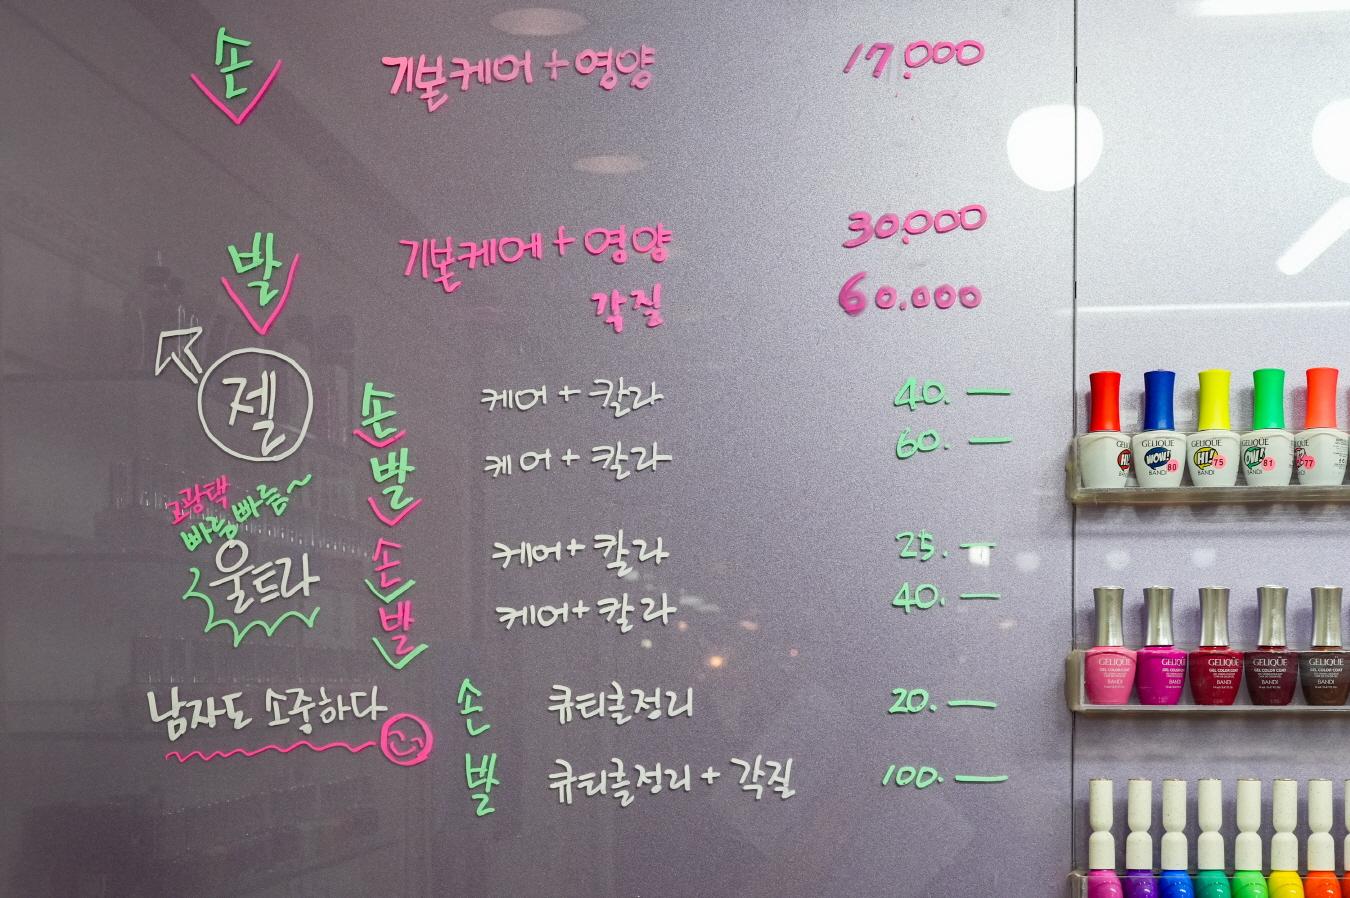 손 기본케어 + 영양 17,000
발 기본케어 + 영양 30,000
각질 60.000
젤 손 케어 + 칼라 40. —
발 케어 + 칼라 60. —
고광택
빠름빠름~
울트라 손 케어+ 칼라 25. —
발 케어+ 칼라 40. —
남자도 소중하다 손 큐티클정리 20. —
발 큐티클정리 + 각질 100. —
GELIQUE GELIQUE GELIQUE GELIQUE
WOW! HI! OW!
80 75 81 77
BANDI BANDI BANDI
GELIQUE GELIQUE GELIQUE GELIQUE GELIQUE
GEL COLOR COAT GEL COLOR COAT GEL COLOR COAT
BANDI BANDI BANDI BANDI BANDI